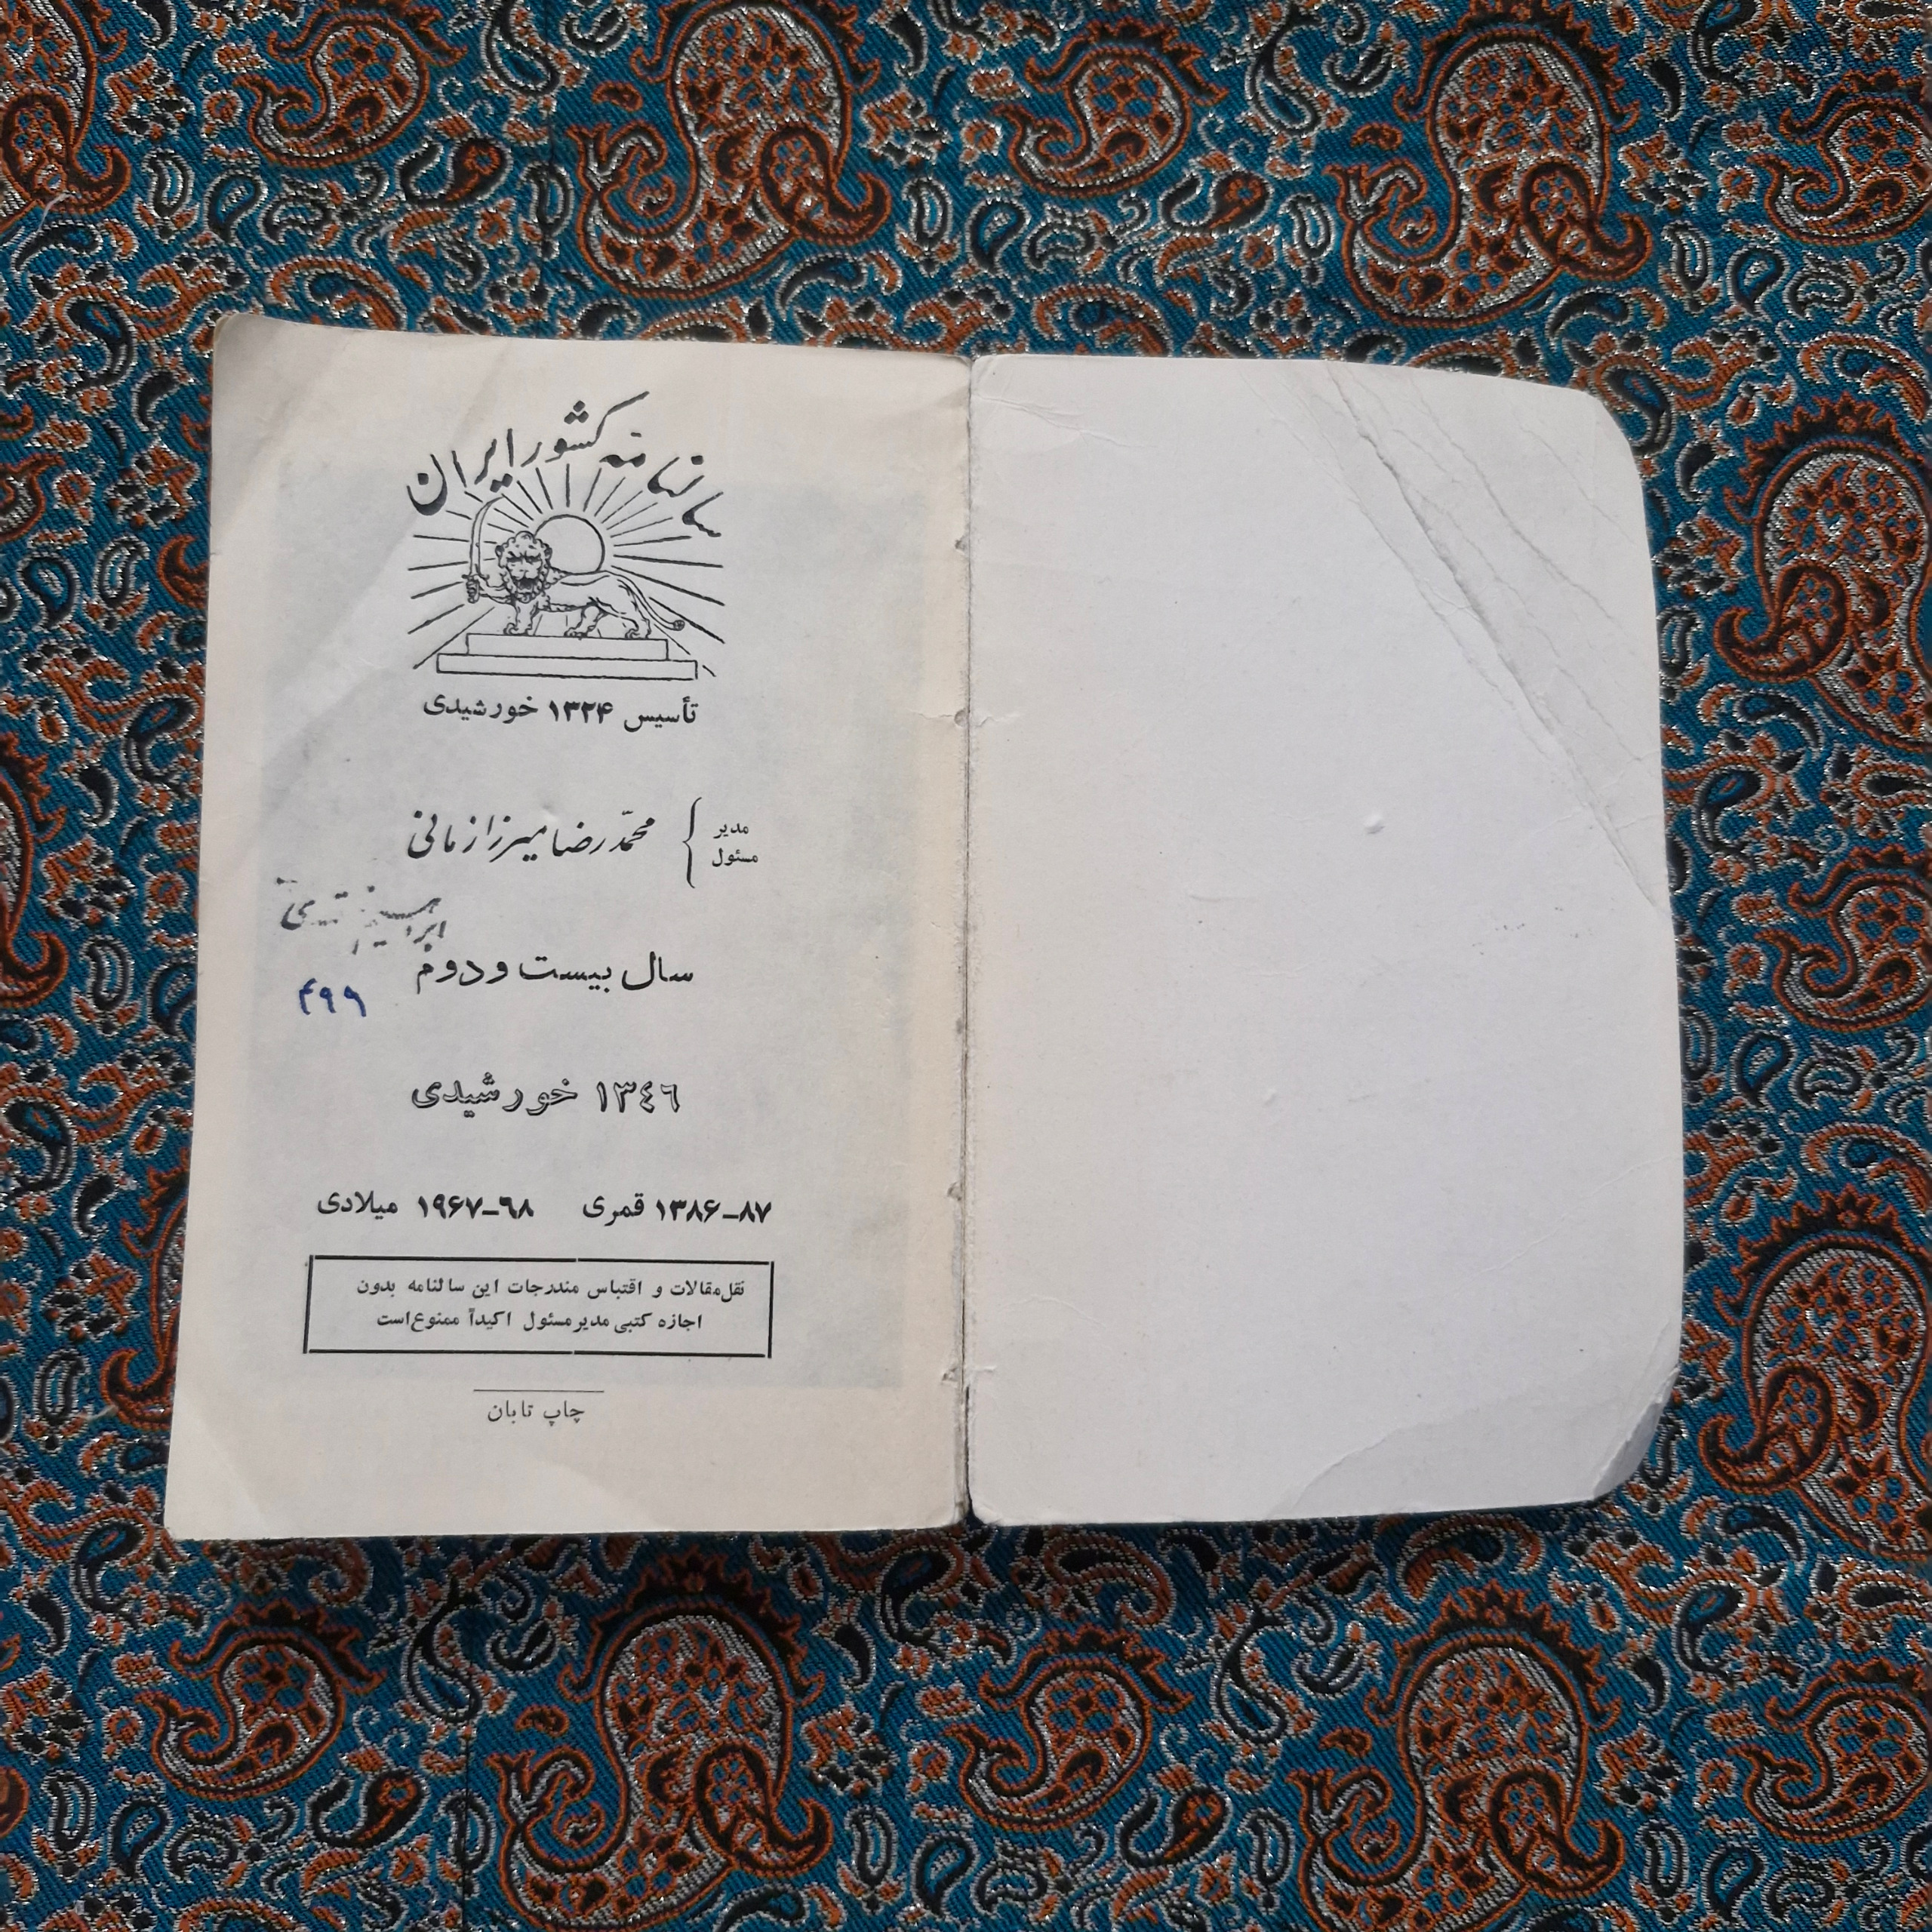 سالنامه کشور ایران
تأسیس ۱۳۲۴ خورشیدی
مدیر
مسئول
محمّدرضا میرزازمانی
ابراهیم
سال بیست و دوم
۴۹۹
۱۳٤٦ خورشیدی
۱۳۸۶-۸۷ قمری ۱۹۶۷-۶۸ میلادی
نقل مقالات و اقتباس مندرجات این سالنامه بدون
اجازه کتبی مدیر مسئول اکیداً ممنوع است
چاپ تابان